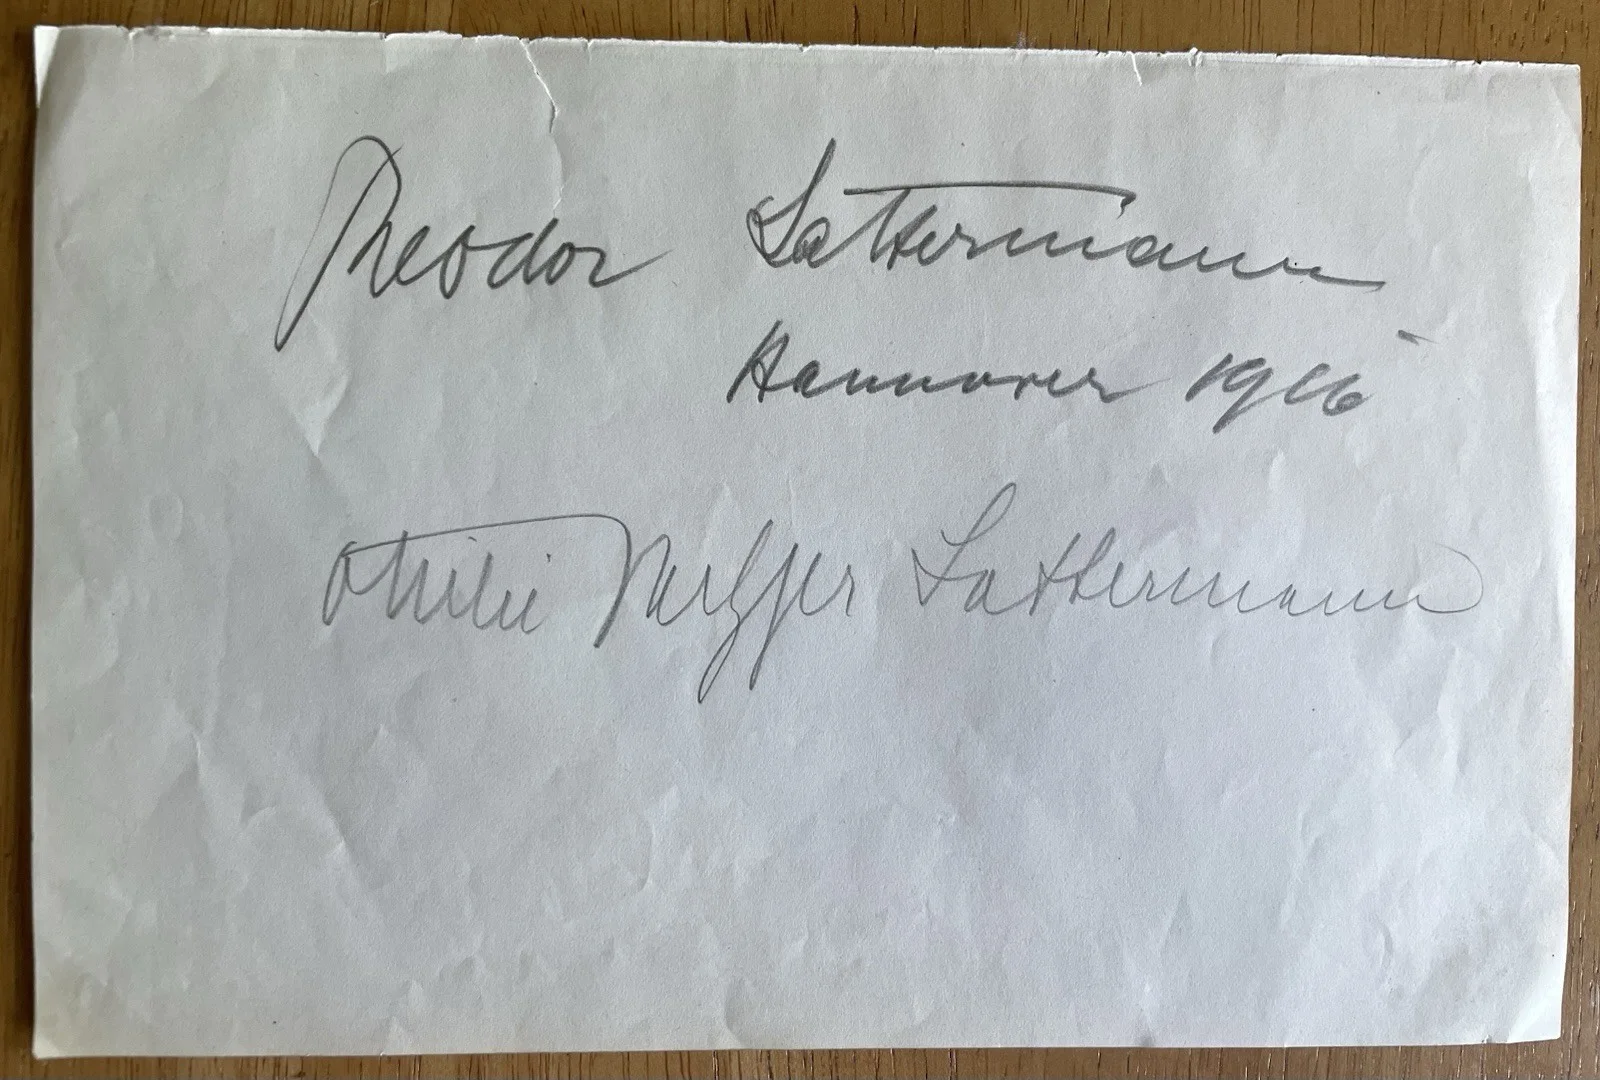 Theodor Lattermann
Hannover 1916
Ottilie Metzger Lattermann